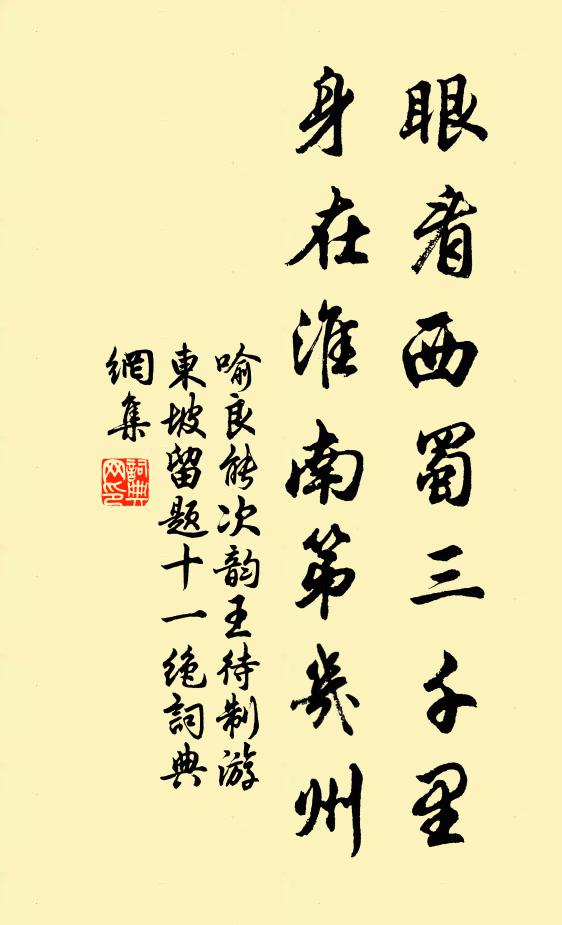 眼看西蜀三千里
身在淮南第幾州
喻良能次韵王待制游
東坡留題十一絶詞典
網集
詞典
网印